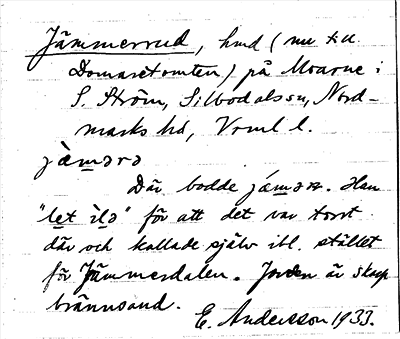 Jämmerrud, hmd (nu t.u.
Domaretomten) på Moarne i
S. Ström, Silbodals sn, Nord-
marks hd, Vrml l.
jä̀mərə
Där bodde jä́məzz. Han
"let ìlə" för att det var torrt
där och kallade själv ibl. stället
för Jämmerdalen. Jorden är skarp
brännsand.
E. Andersson 1933.